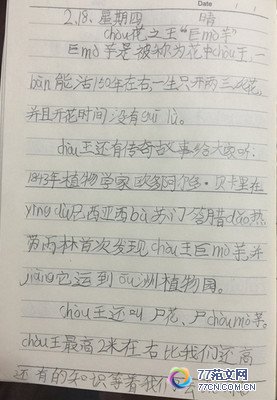 Date
2.18. 星期四 晴
chòu花之王"巨mó芋"
巨mó芋是被称为花中chòu王,一
bān能活150年左右,一生只开两三次花,
并且开花时间没有guī lǜ。
chòu王还有传奇故事给大家听:
1843年植物学家欧多阿尔多·贝卡里在
yìng dù尼西亚西bù苏门答腊dǎo热
带雨林首次发现chòu王巨mó芋并
jiāng它运到ōu洲植物园。
chòu王还叫尸花,尸chòu mó芋。
chòu王最高2米左右比我们还高
还有的知识等着我们
77范文网
WWW.77CN.COM.CN